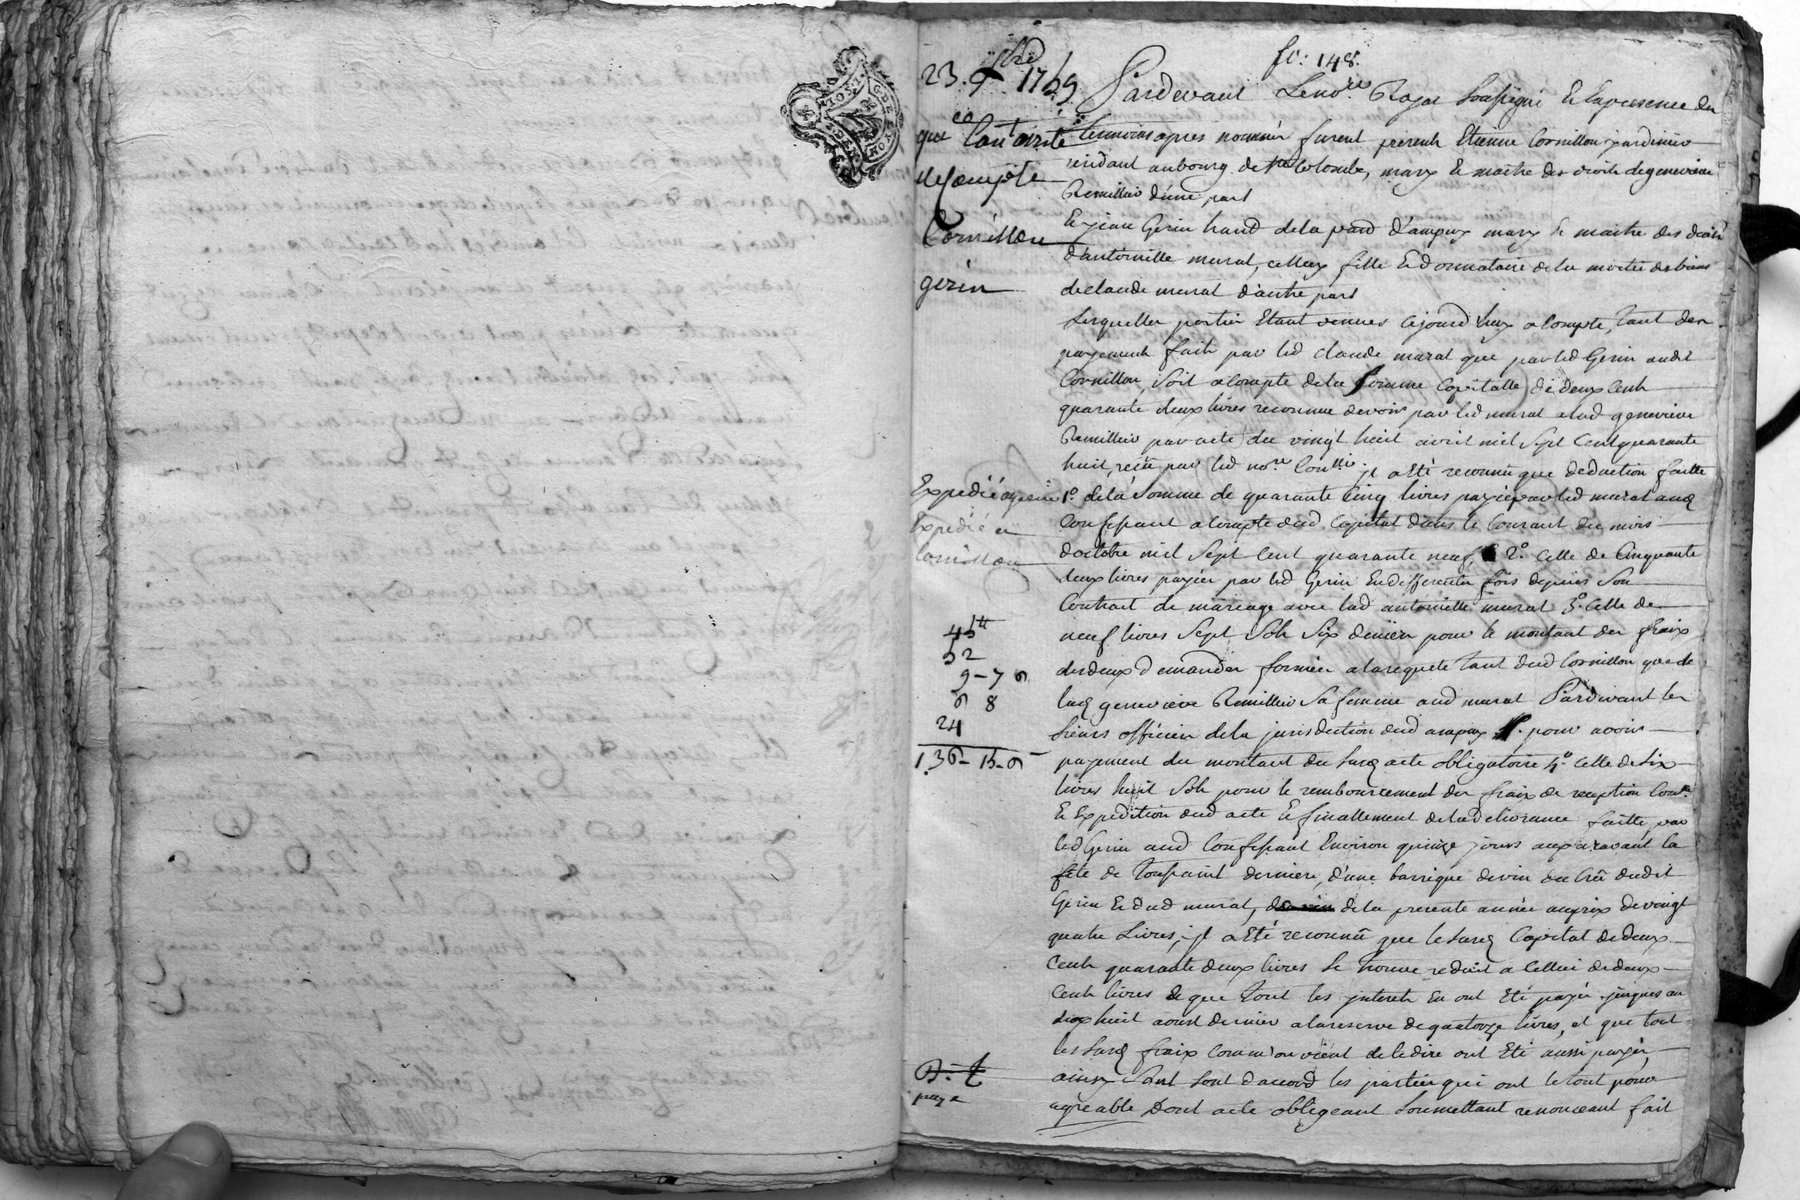 fo: 148.
23. 9bre 1769
quittance
de Compte
Cornillon
gerin
Pardevant Le no.re Royal soussigné Et En presence des
temoins apres nommés furent presents Etienne Cornillon jardinier
residant au bourg de Ste Colombe, mary Et maitre des droits de genevieve
Remillier d'une part
Et jean Gerin hand de la par.d d'ampuy mary Et maitre des droits
d'antoinille murat, celle cy fille Et donnataire de la moitié des biens
de claude murat d'autre part
Lesquelles parties Etant venues cejourd'huy a compte, tant des
payements faits par led claude murat que par led Gerin audt
Cornillon, soit a compte de la somme Capitalle de deux Cents
quarante deux livres reconnue devoir par led murat a lad genevieve
Remillier par acte du vingt huit avril mil sept Cent quarante
huit, reçu par led no.re il a Eté reconnu que deduction faitte
Expedié a gerin
1.o de la somme de quarante Cinq livres payée par led murat aud
Expedié a
Cornillon
Confessant a compte dud Capital dans le Courant du mois
d'octobre mil sept cent quarante neuf, 2.o celle de Cinquante
deux livres payées par led Gerin En differentes fois depuis son
Contract de mariage avec lad antoinette murat 3.o Celle de
neuf livres sept sols six deniers pour le montant des fraix
des deux demandes formées a la requete tant dud Cornillon que de
lad genevieve Remillier sa femme aud murat Pardevant les
sieurs officiers de la jurisdiction dud ampuy pour avoir
payement du montant du susd acte obligatoire 4.o Celle de six
livres huit sols pour le remboursement des fraix de reception Con.le
Et Expedition dud acte Et finallement de la delivrance faitte par
led Gerin aud Confessant Environ quinze jours auparavant la
fête de Toussaint derniere, d'une barrique de vin du crû dudit
Gerin Et dud murat, de la presente année au prix de vingt
quatre Livres, il a Eté reconnû que le susd Capital de deux
Cents quarante deux livres se trouve reduit a Celluy de deux
Cents livres Et que tout les interets En ont Eté payés jusques au
dix huit aoust dernier a la reserve de quatorze livres, et que tout
les susd fraix comm'on vient de le dire ont Eté aussi payés,
ainsy sont d'accord les parties qui ont le tout pour
agreable Dont acte obligeant soumettant renonceant fait
45 tt
52
9 - 7 6
6 8
24
136 - 15 - 6
paye